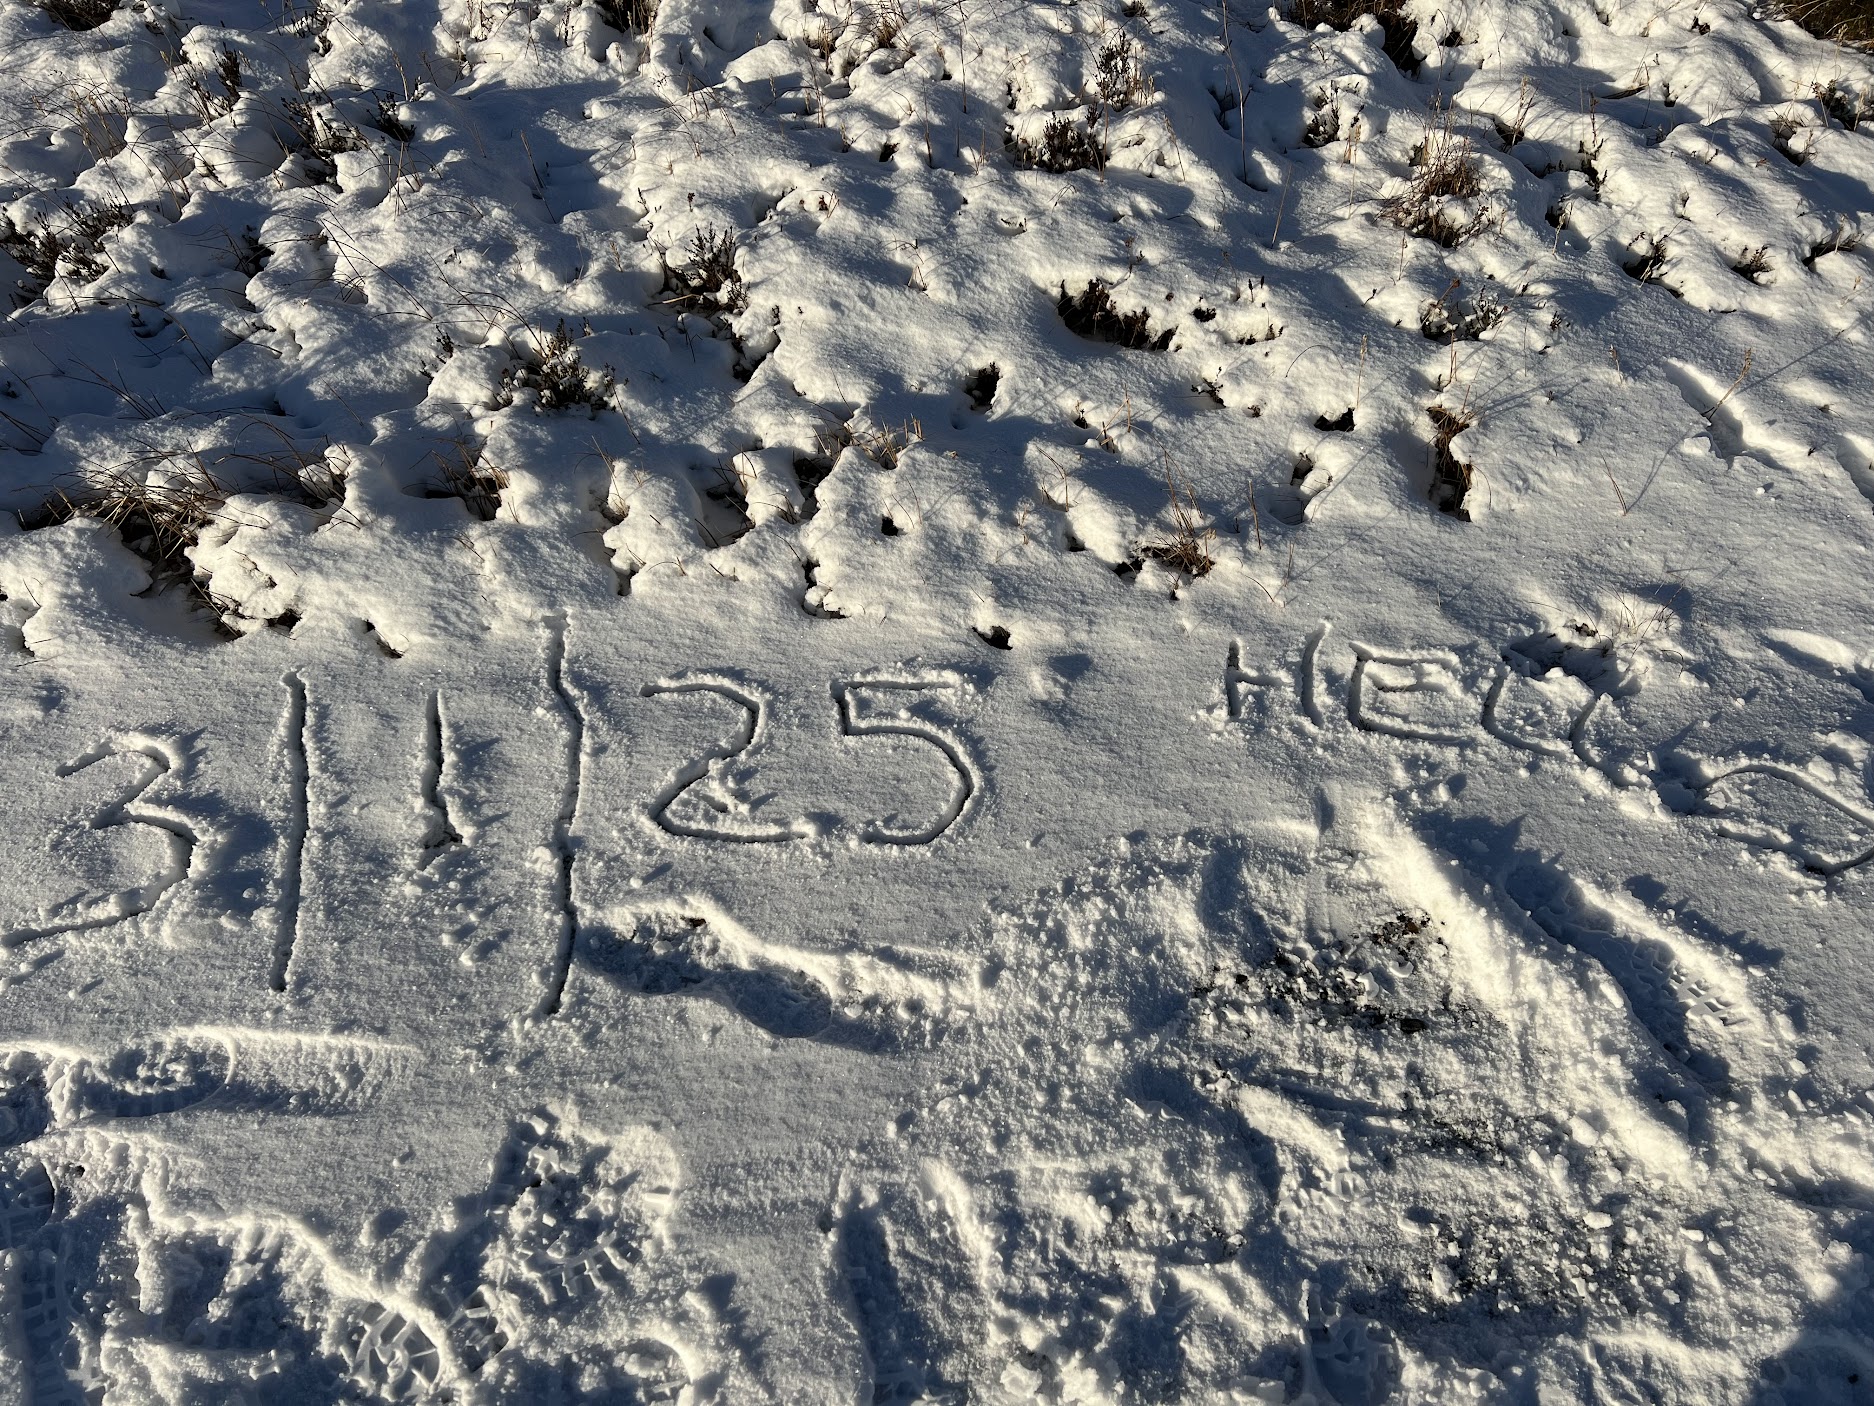 3/1/25 HELLO